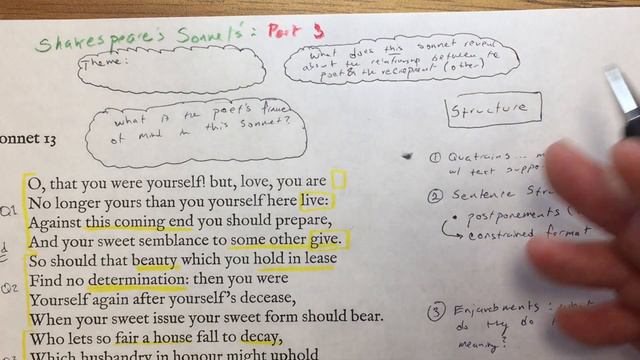 Shakespeare's Sonnets: Part 3
Theme:
What does this sonnet reveal
about the relationship between te
poet & the recipient (other)
What is the poet's frame
of mind in this sonnet?
Structure
onnet 13
O, that you were yourself! but, love, you are
No longer yours than you yourself here live:
Q1
Against this coming end you should prepare,
And your sweet semblance to some other give.
So should that beauty which you hold in lease
Q2
Find no determination: then you were
Yourself again after yourself's decease,
When your sweet issue your sweet form should bear.
Who lets so fair a house fall to decay,
Which husbandry in honour might uphold
① Quatrains...
w/ text suppo
② Sentence Str
• postponements
constrained format
③ Enjambments:
do they do
meaning?